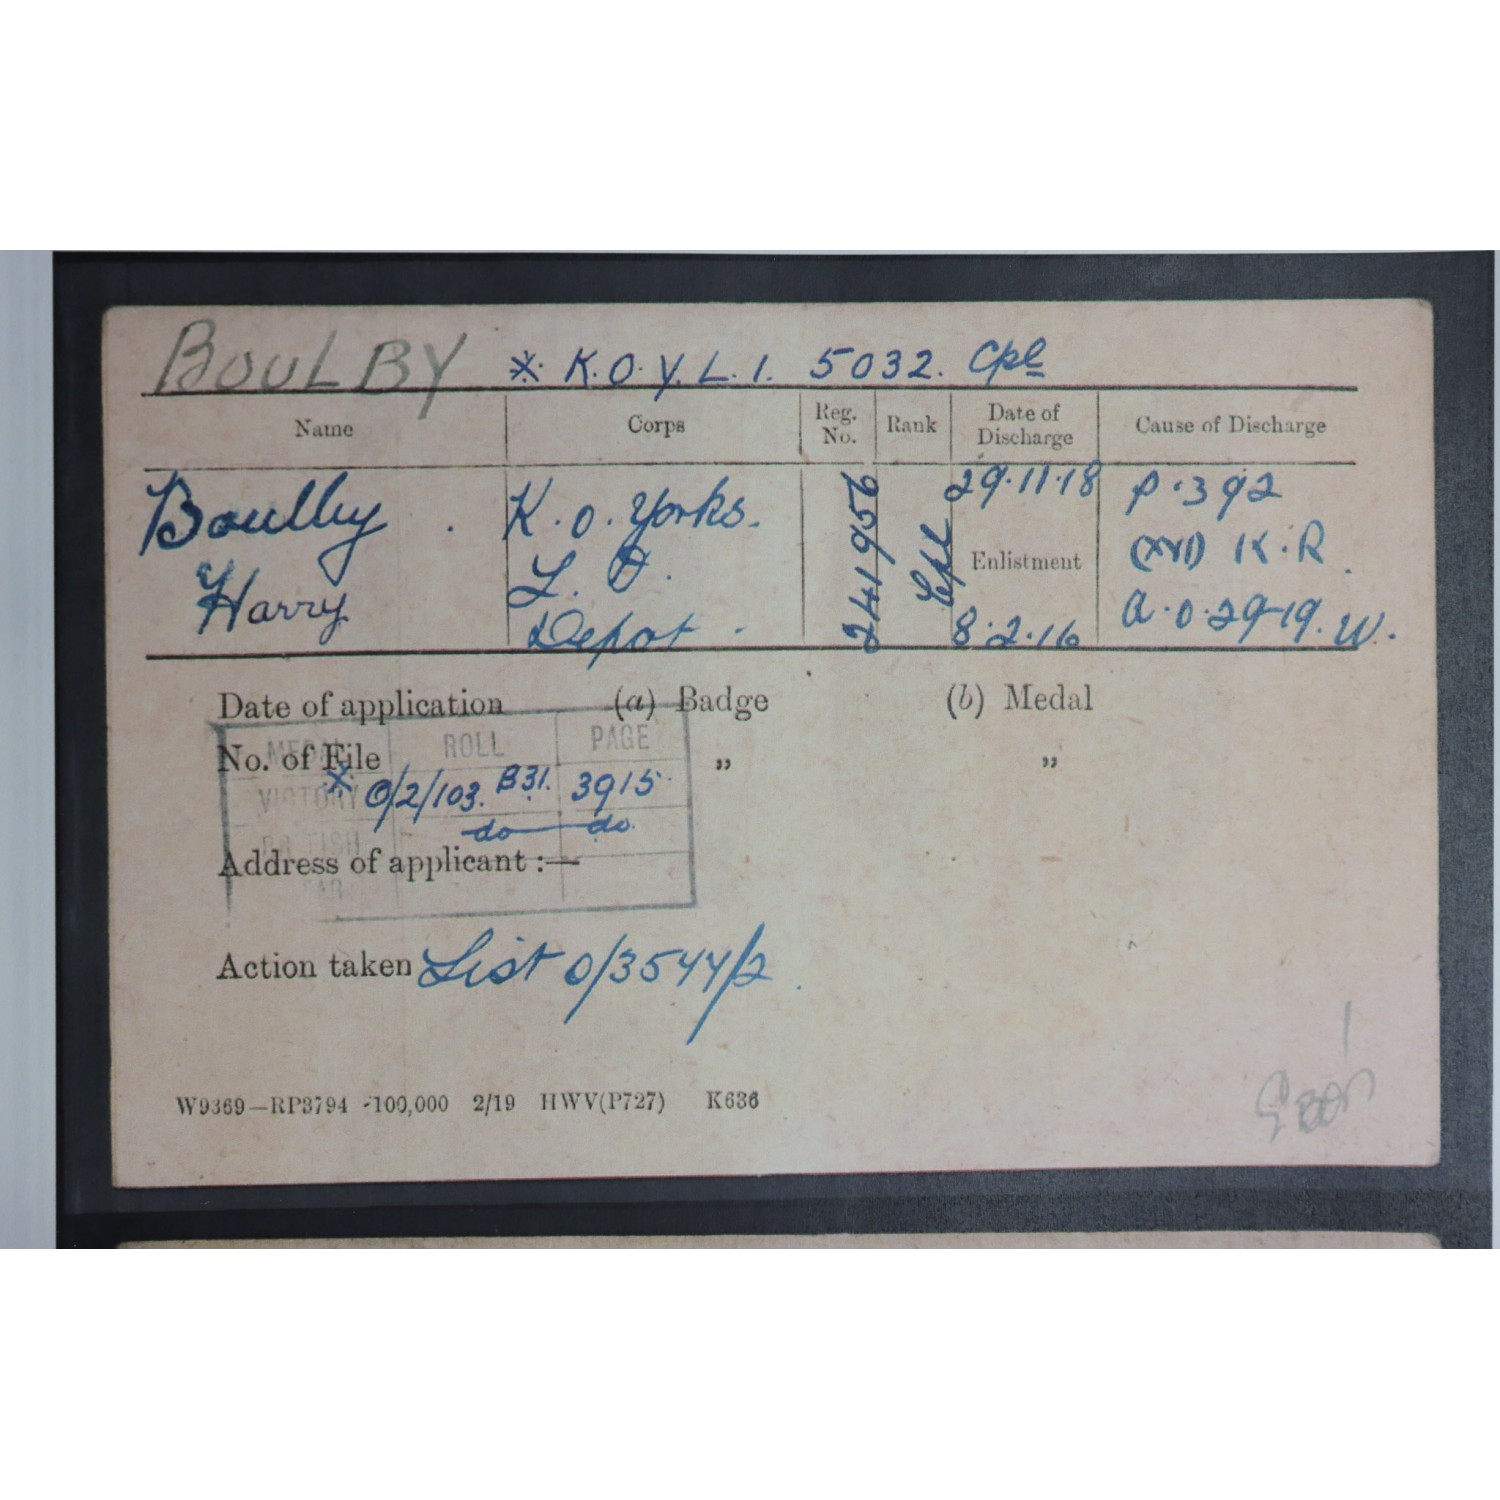 BOULBY * K.O.Y.L.I. 5032. Cpl
Name Corps Reg. No. Rank Date of Discharge Cause of Discharge
Boulby . K.O. Yorks. 241956 Cpl 29.11.18 P.392
Enlistment (XVI) K.R.
Harry L.I. 8.2.16 A.O.29-19. W.
Depot.
Date of application (a) Badge (b) Medal
MEDAL ROLL PAGE
No. of File „ „
VICTORY * O/2/103. B31. 3915.
BRITISH do do.
Address of applicant :—
WAR
Action taken List O/3544/2.
W9369—RP3794 -100,000 2/19 HWV(P727) K636